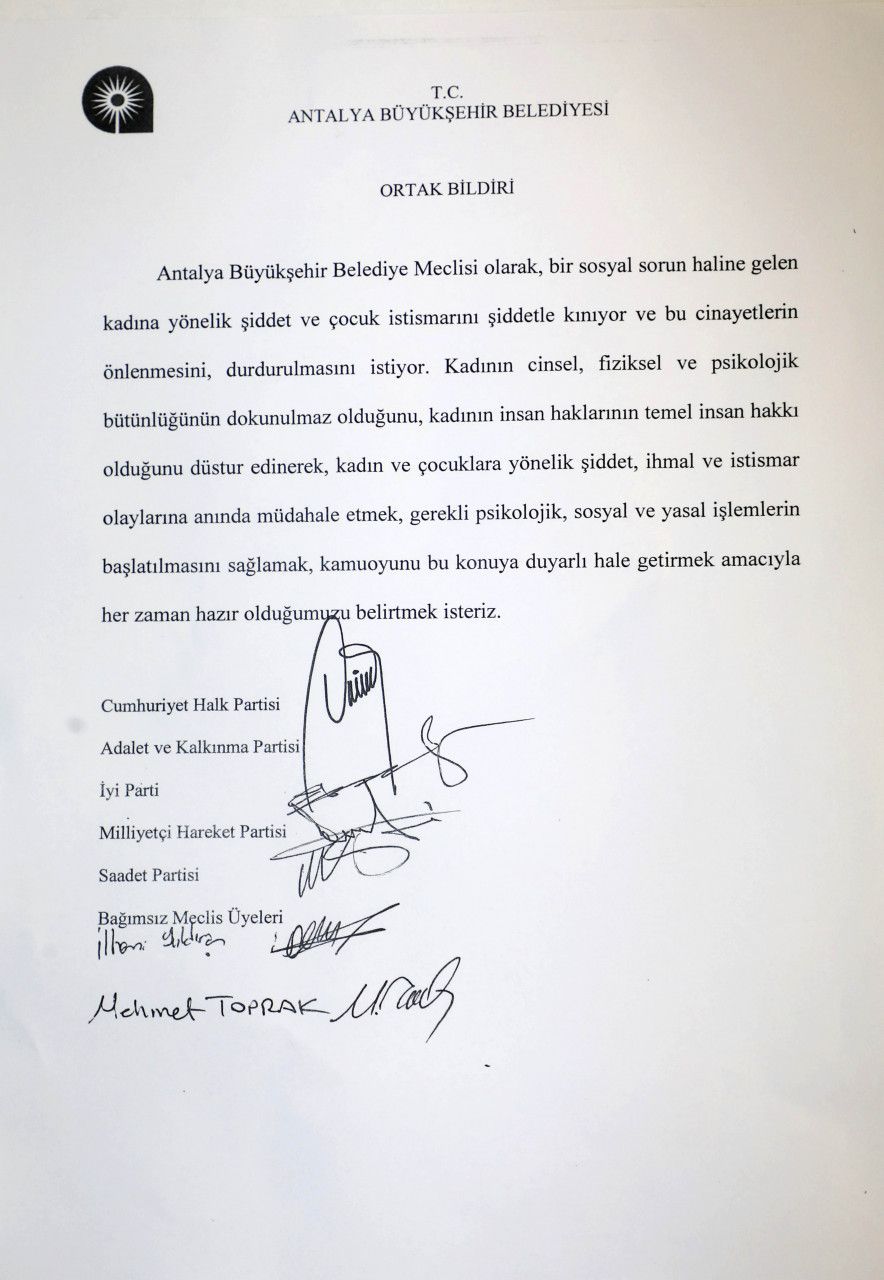 T.C.
ANTALYA BÜYÜKŞEHİR BELEDİYESİ
ORTAK BİLDİRİ
Antalya Büyükşehir Belediye Meclisi olarak, bir sosyal sorun haline gelen
kadına yönelik şiddet ve çocuk istismarını şiddetle kınıyor ve bu cinayetlerin
önlenmesini, durdurulmasını istiyor. Kadının cinsel, fiziksel ve psikolojik
bütünlüğünün dokunulmaz olduğunu, kadının insan haklarının temel insan hakkı
olduğunu düstur edinerek, kadın ve çocuklara yönelik şiddet, ihmal ve istismar
olaylarına anında müdahale etmek, gerekli psikolojik, sosyal ve yasal işlemlerin
başlatılmasını sağlamak, kamuoyunu bu konuya duyarlı hale getirmek amacıyla
her zaman hazır olduğumuzu belirtmek isteriz.
Cumhuriyet Halk Partisi
Adalet ve Kalkınma Partisi
İyi Parti
Milliyetçi Hareket Partisi
Saadet Partisi
Bağımsız Meclis Üyeleri
Mehmet TOPRAK